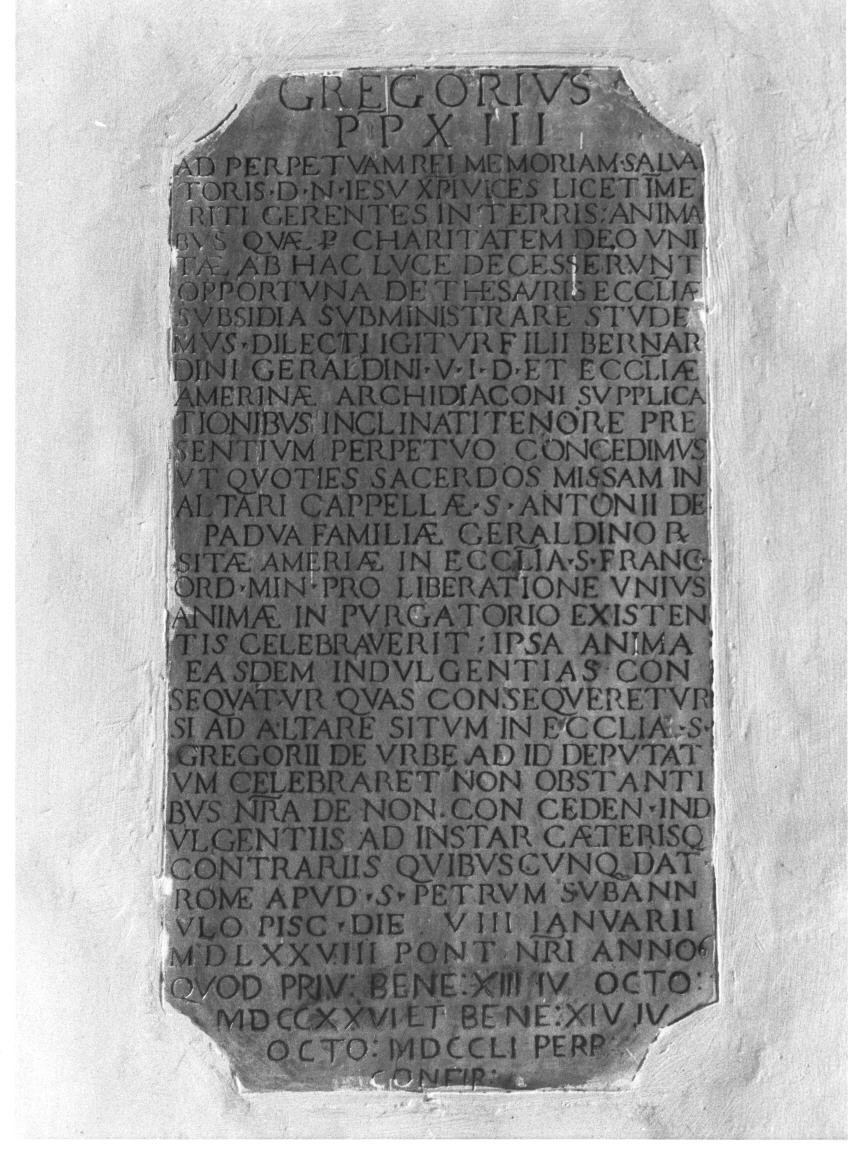 GREGORIVS
P P X III
AD PERPETVAM REI MEMORIAM·SALVA
TORIS·D·N·IESV XPI VICES LICET IME
RITI GERENTES IN TERRIS·ANIMA
BVS QVÆ P CHARITATEM DEO VNI
TÆ AB HAC LVCE DECESSERVNT
OPPORTVNA DE THESAVRIS ECCLIÆ
SVBSIDIA SVBMINISTRARE STVDE
MVS·DILECTI IGITVR FILII BERNAR
DINI GERALDINI·V·I·D·ET ECCLIÆ
AMERINÆ ARCHIDIACONI SVPPLICA
TIONIBVS INCLINATI TENORE PRE
SENTIVM PERPETVO CONCEDIMVS
VT QVOTIES SACERDOS MISSAM IN
ALTARI CAPPELLÆ·S·ANTONII DE
PADVA FAMILIÆ GERALDINOR
SITÆ AMERIÆ IN ECCLIA·S·FRANC·
ORD·MIN·PRO LIBERATIONE VNIVS
ANIMÆ IN PVRGATORIO EXISTEN
TIS CELEBRAVERIT; IPSA ANIMA
EASDEM INDVLGENTIAS CON
SEQVATVR QVAS CONSEQVERETVR
SI AD ALTARE SITVM IN ECCLIA·S·
GREGORII DE VRBE AD ID DEPVTAT
VM CELEBRARET NON OBSTANTI
BVS NRA DE NON·CON CEDEN·IND
VLGENTIIS AD INSTAR CÆTERISQ
CONTRARIIS QVIBVSCVNQ DAT
ROMÆ APVD·S·PETRVM SVB ANN
VLO PISC·DIE VIII IANVARII
MDLXXVIIII PONT NRI ANNO 6
QVOD PRIV: BENE:XIII IV OCTO:
MDCCXXVI ET BENE:XIV IV
OCTO: MDCCLI PERP:
CONFIR: